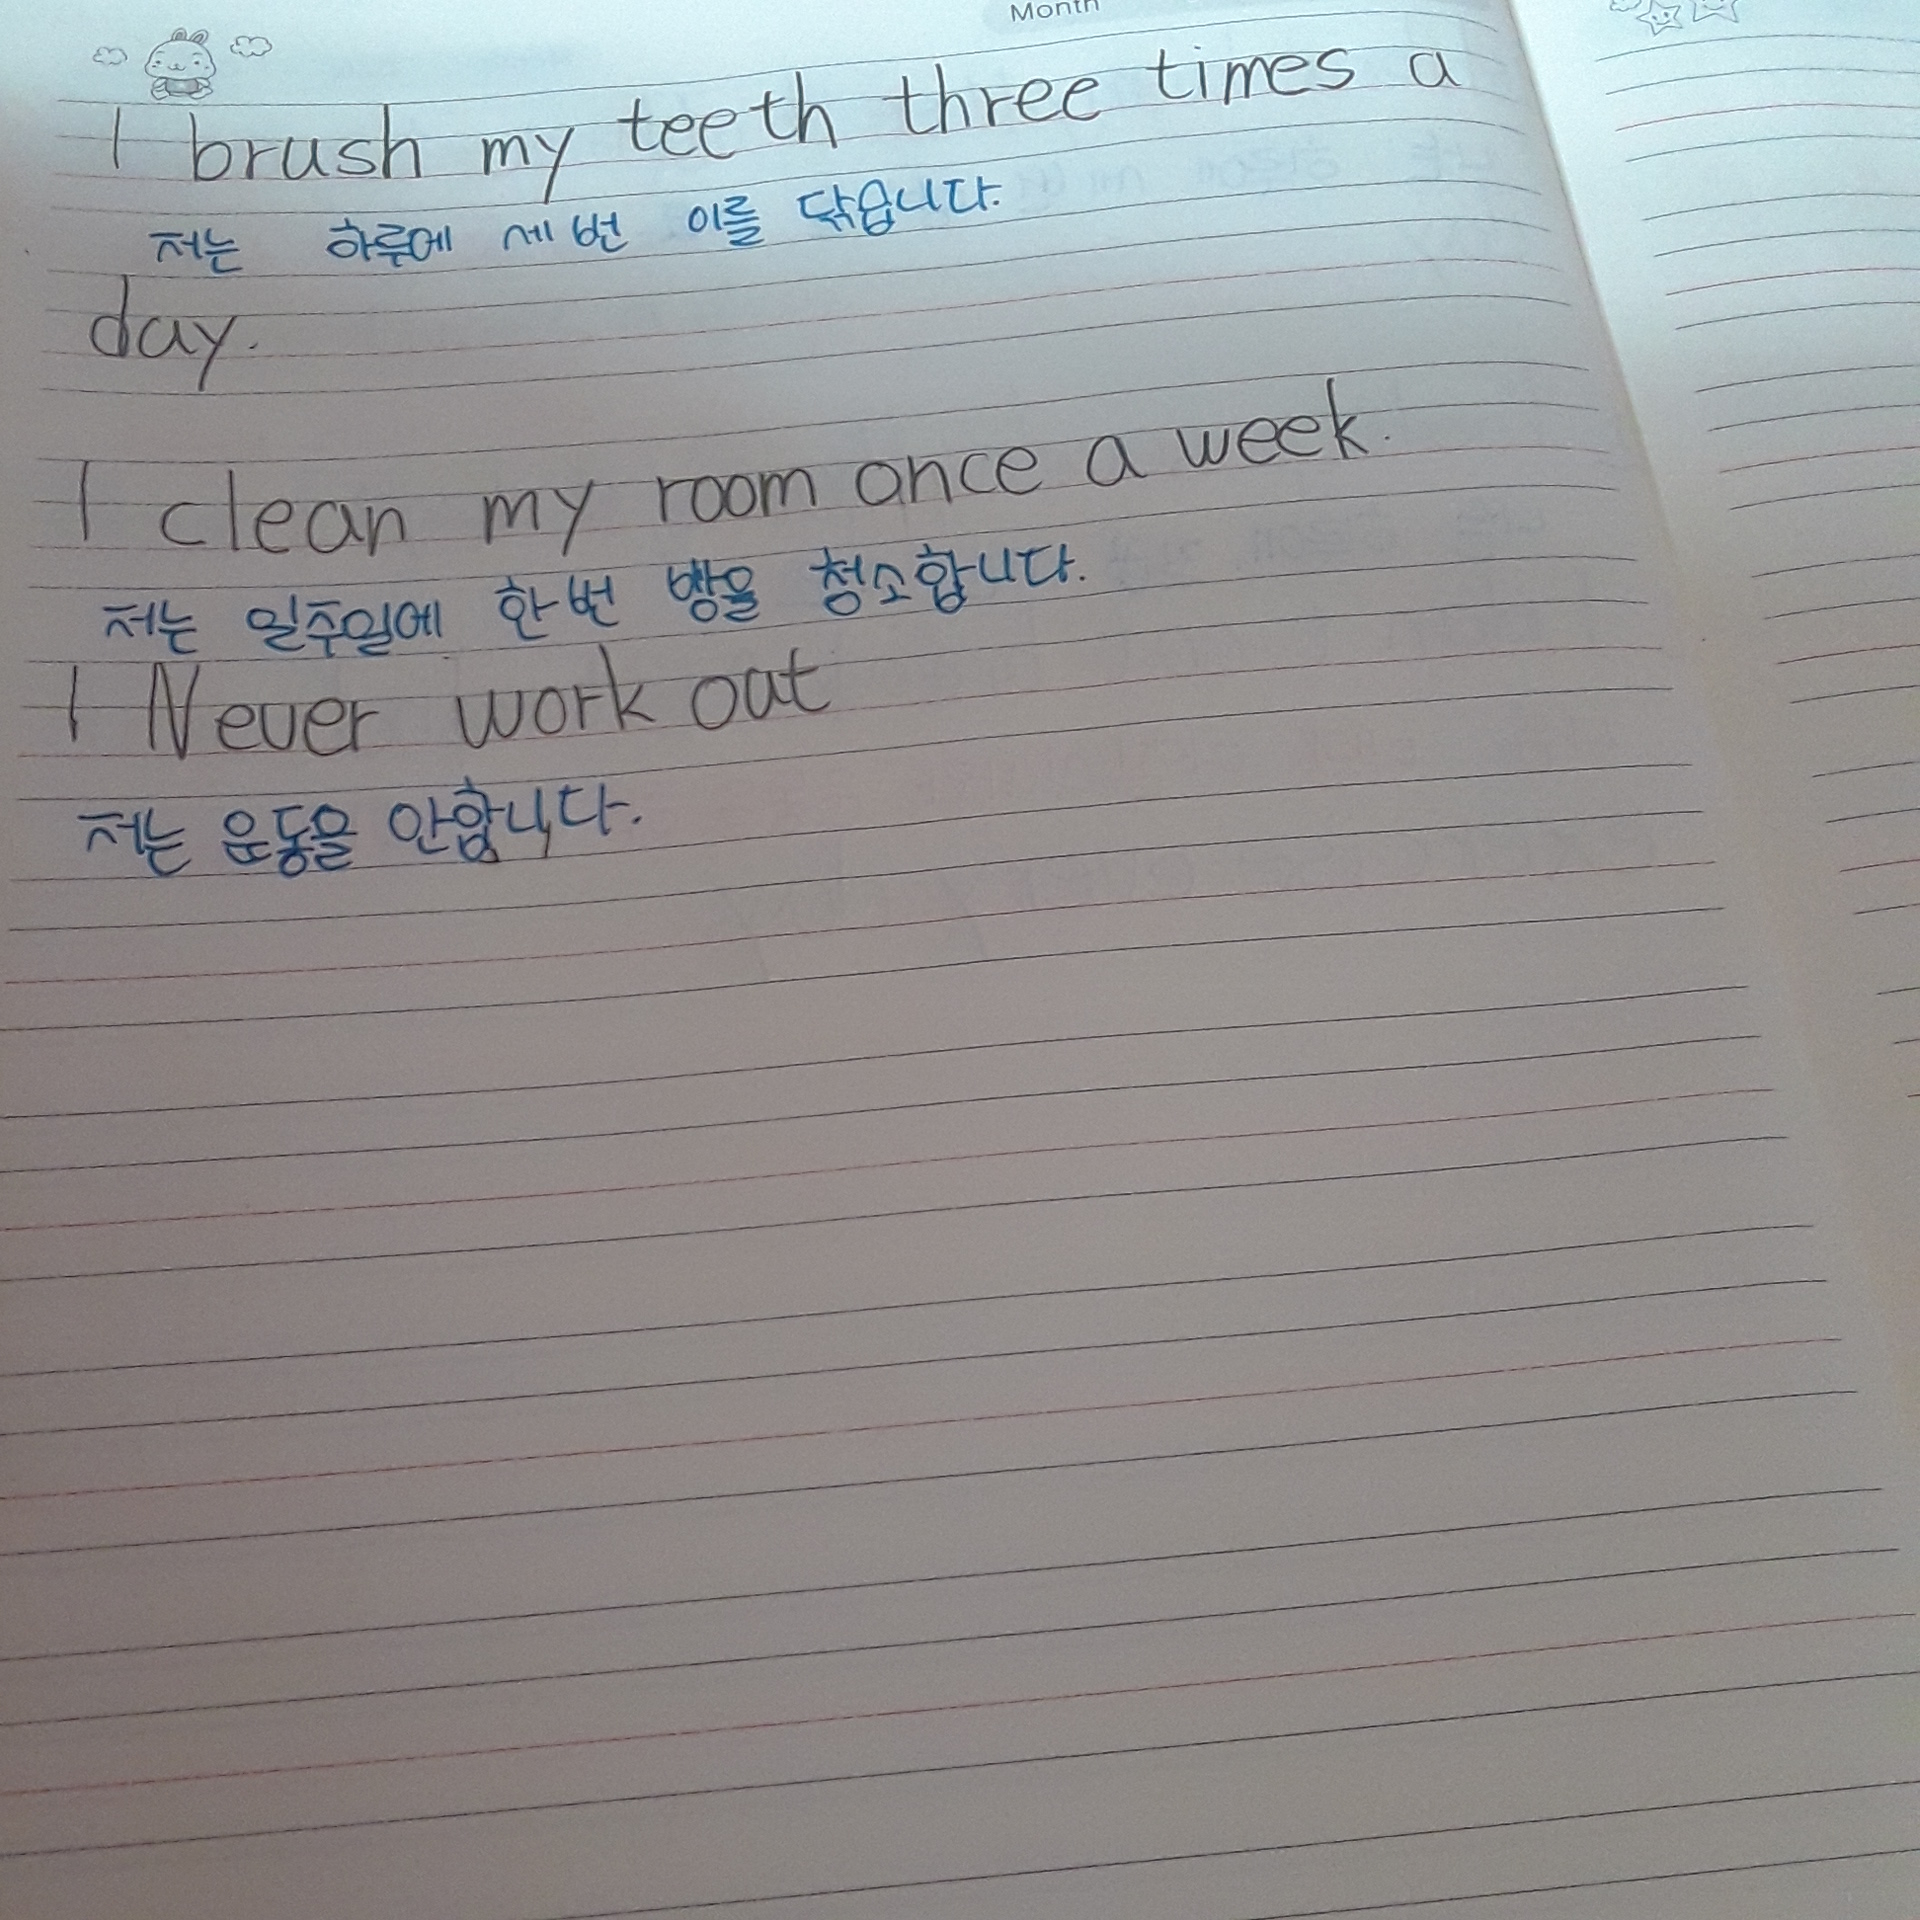 Month
I brush my teeth three times a
저는 하루에 세 번 이를 닦습니다.
day.
I clean my room once a week.
저는 일주일에 한 번 방을 청소합니다.
I Never work out
저는 운동을 안합니다.